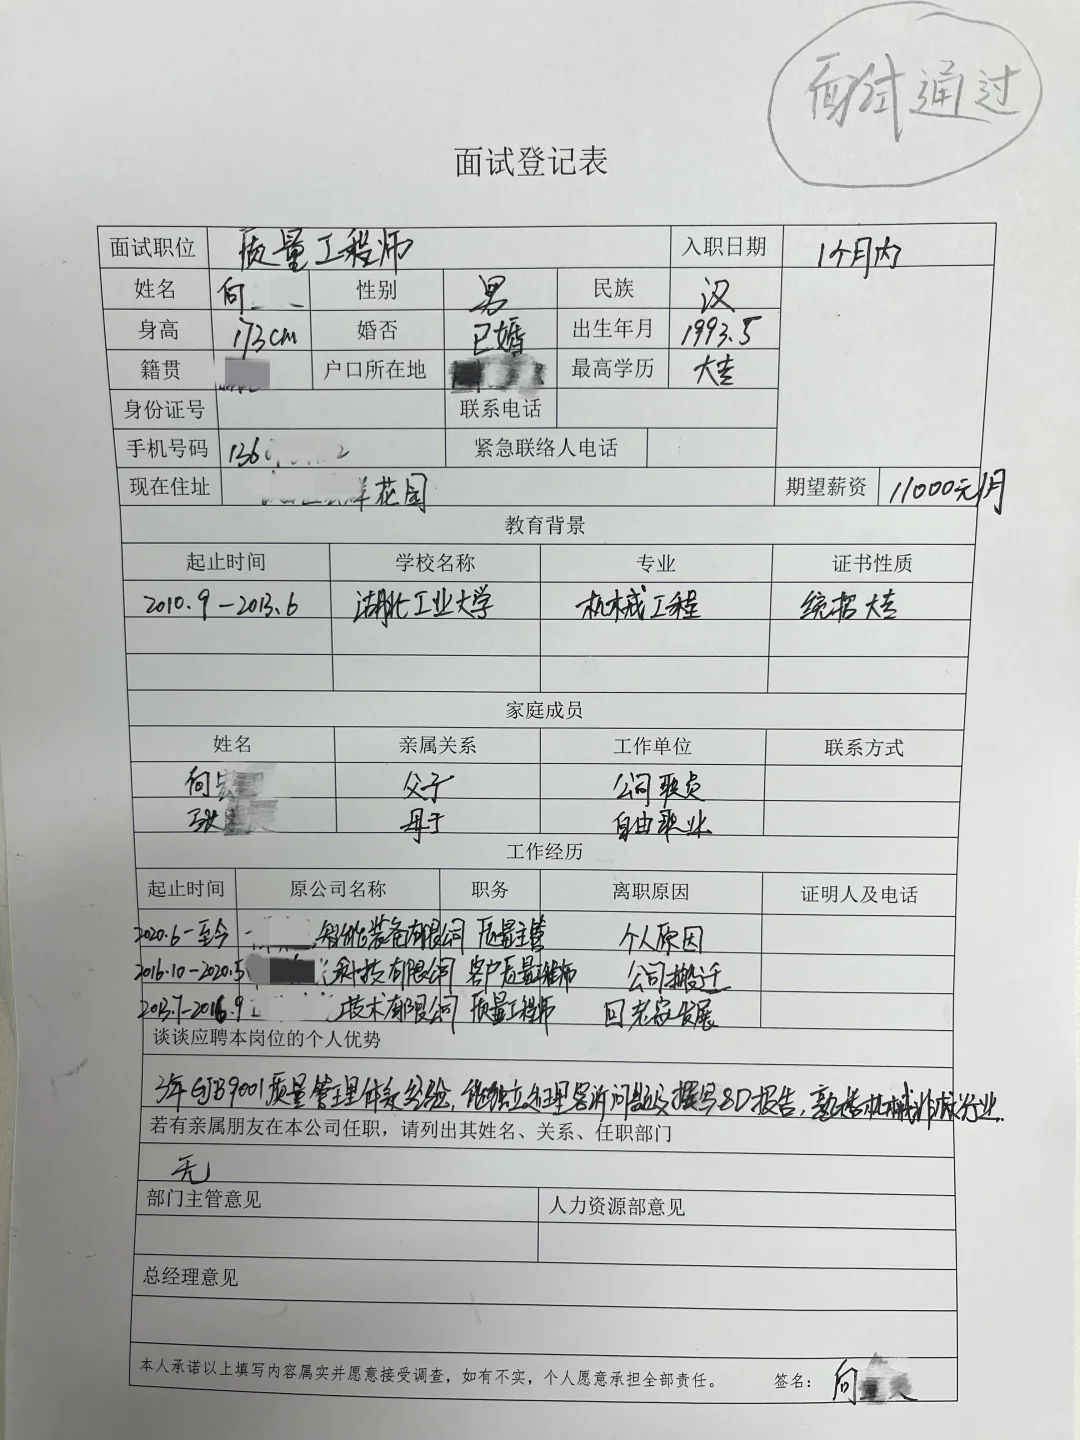 面试通过
面试登记表
面试职位 质量工程师 入职日期 1个月内
姓名 向 性别 男 民族 汉
身高 173cm 婚否 已婚 出生年月 1993.5
籍贯 户口所在地 最高学历 大专
身份证号 联系电话
手机号码 136 紧急联络人电话
现在住址 花园 期望薪资 11000元/月
教育背景
起止时间 学校名称 专业 证书性质
2010.9-2013.6 湖北工业大学 机械工程 统招大专
家庭成员
姓名 亲属关系 工作单位 联系方式
向 父子 公司职员
张 母子 自由职业
工作经历
起止时间 原公司名称 职务 离职原因 证明人及电话
2020.6-至今 智能装备有限公司 质量主管 个人原因
2016.10-2020.5 科技有限公司 客户质量工程师 公司搬迁
2013.7-2016.9 技术有限公司 质量工程师 回老家发展
谈谈应聘本岗位的个人优势
3年GJB9001质量管理体系经验,能独立处理客诉问题及撰写8D报告,熟悉机械行业.
若有亲属朋友在本公司任职，请列出其姓名、关系、任职部门
无
部门主管意见 人力资源部意见
总经理意见
本人承诺以上填写内容属实并愿意接受调查，如有不实，个人愿意承担全部责任。 签名： 向